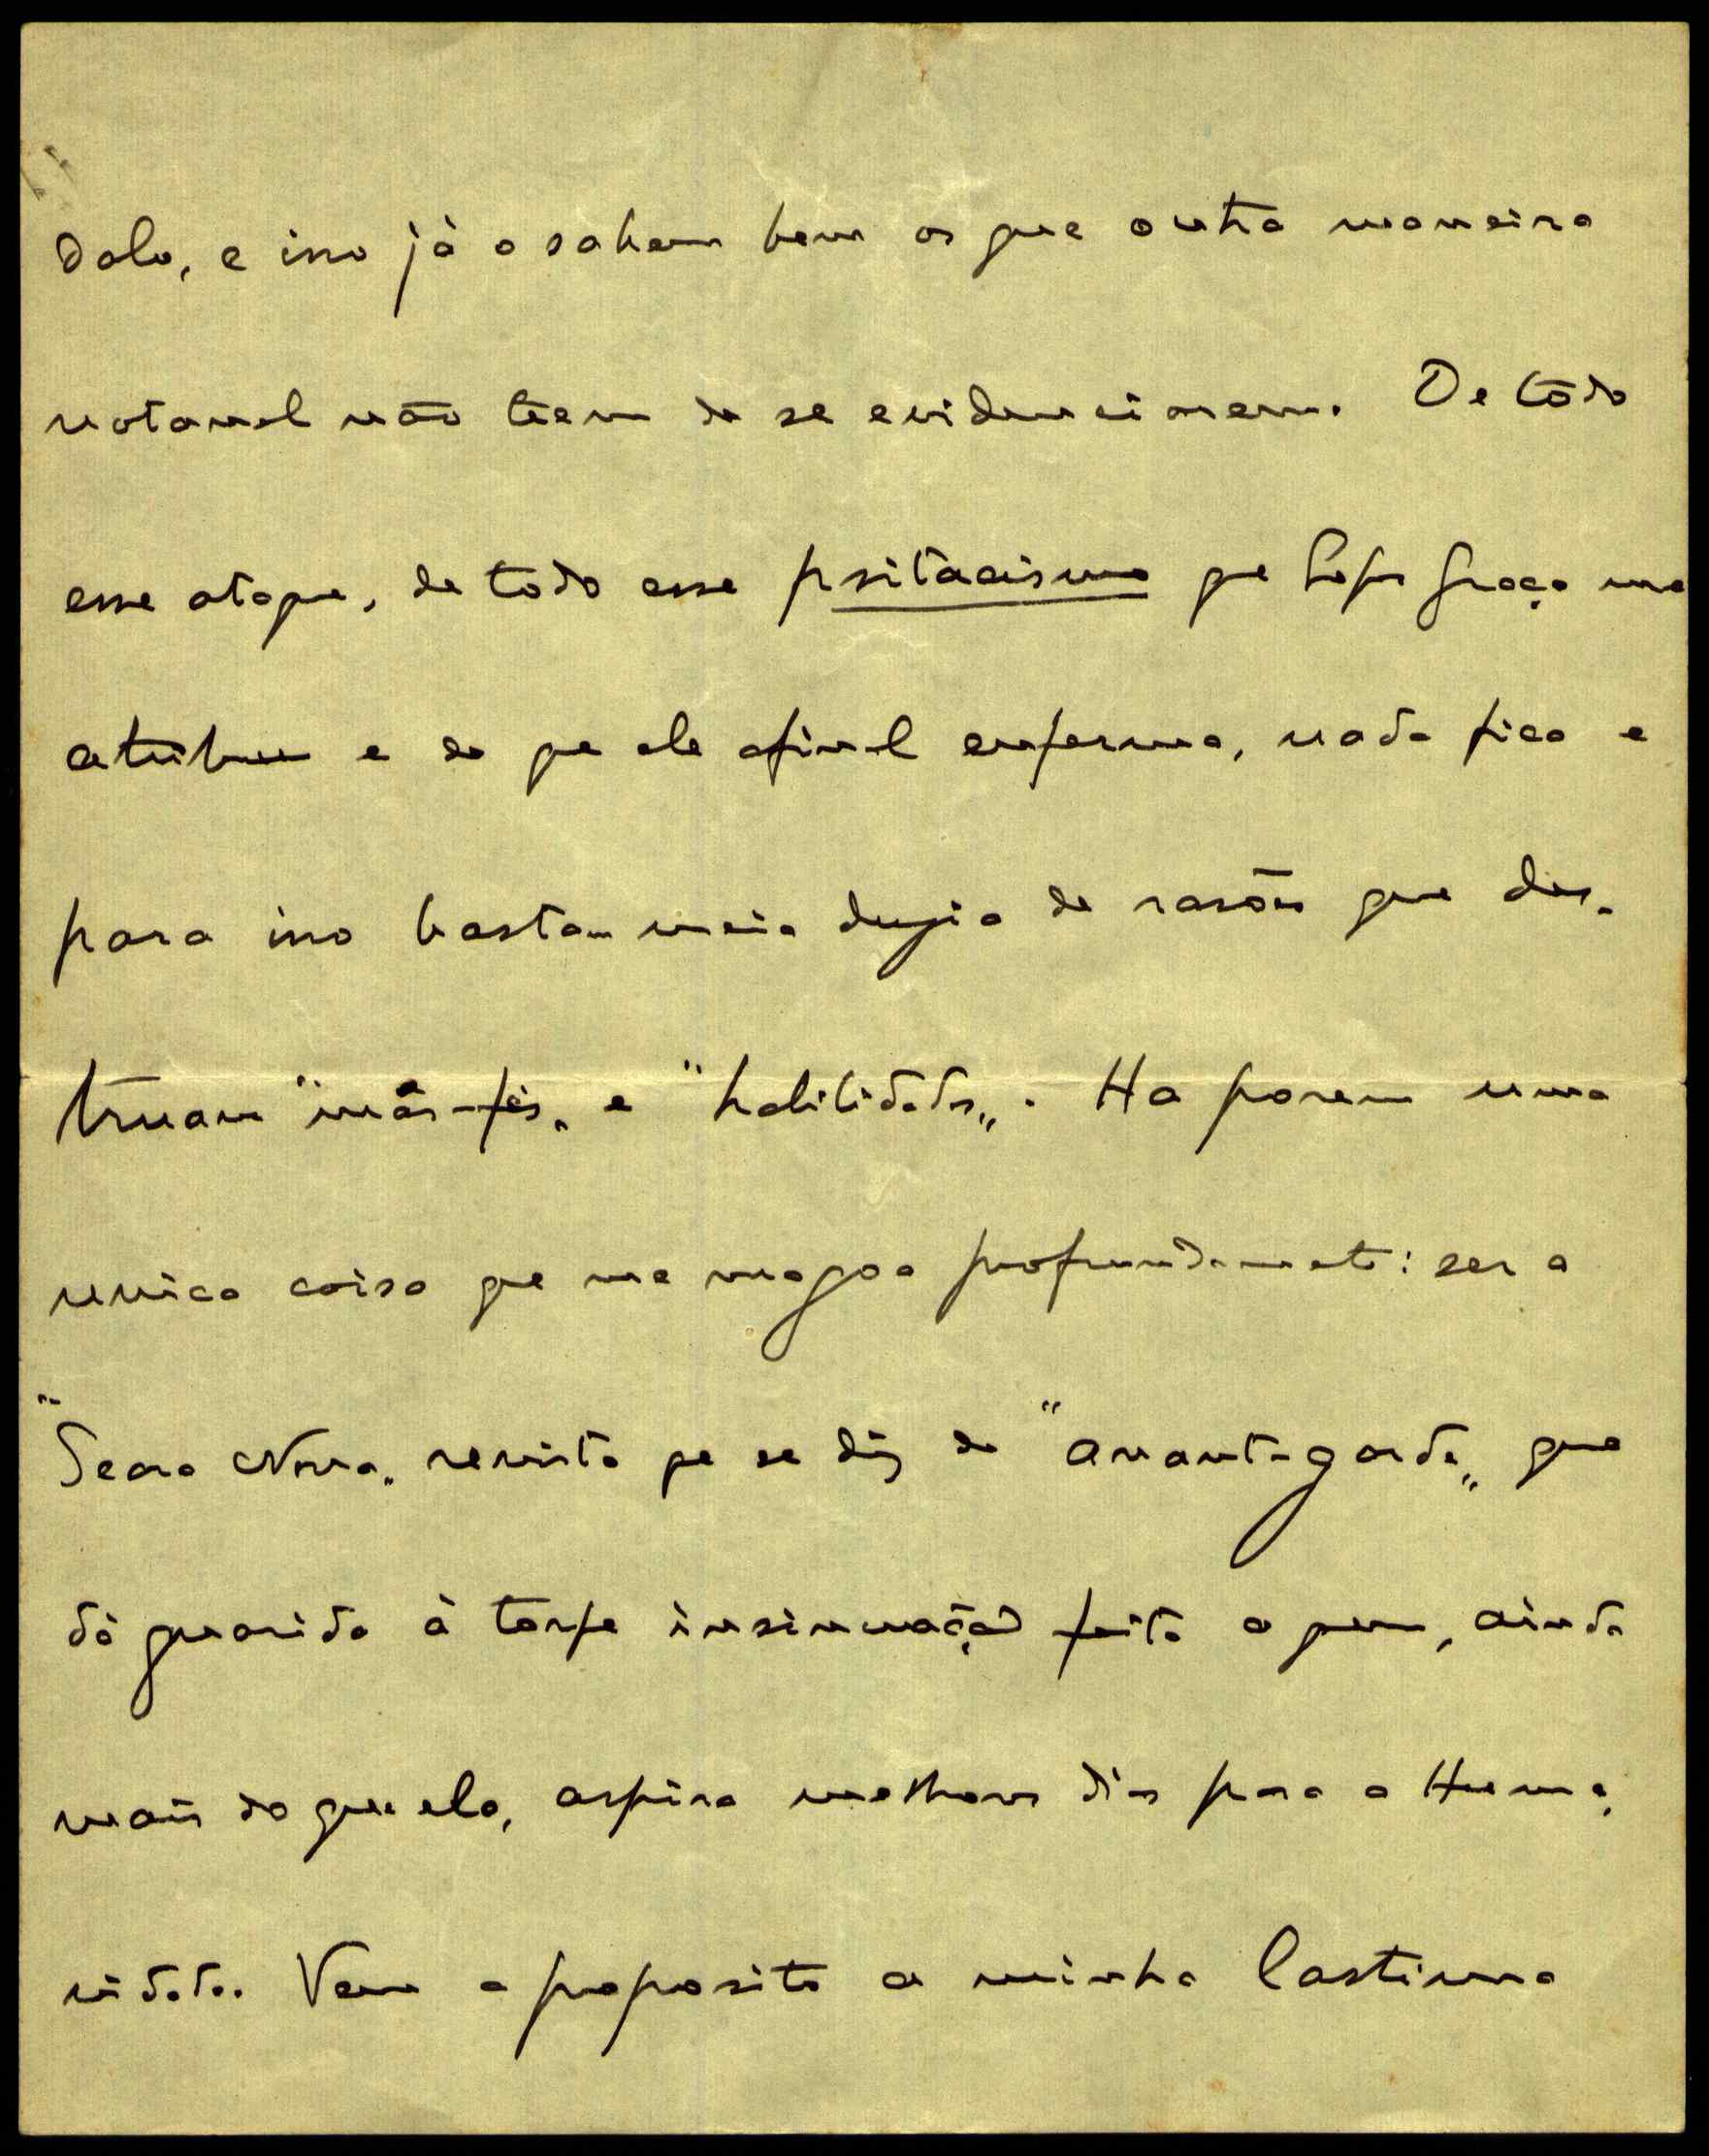 dalo, e isso já o sabem bem os que outra maneira
notavel não teem de se evidenciarem. De tôdo
esse ataque, de todo esse psitacismo que Lopes Graça me
atribue e de que ele afinal enferma, nada fica e
para isso bastam meia duzia de rasões que des-
truam "más-fés" e "habilidades". Ha porem uma
unica coisa que me magoa profundamente: ser a
"Seara Nova" revista que se diz de "avant-garde" que
dá guarida á torpe insinuação feita a quem, ainda
mais do que ela, aspira melhores dias para a Huma-
nidade. Vem a proposito a minha lastima